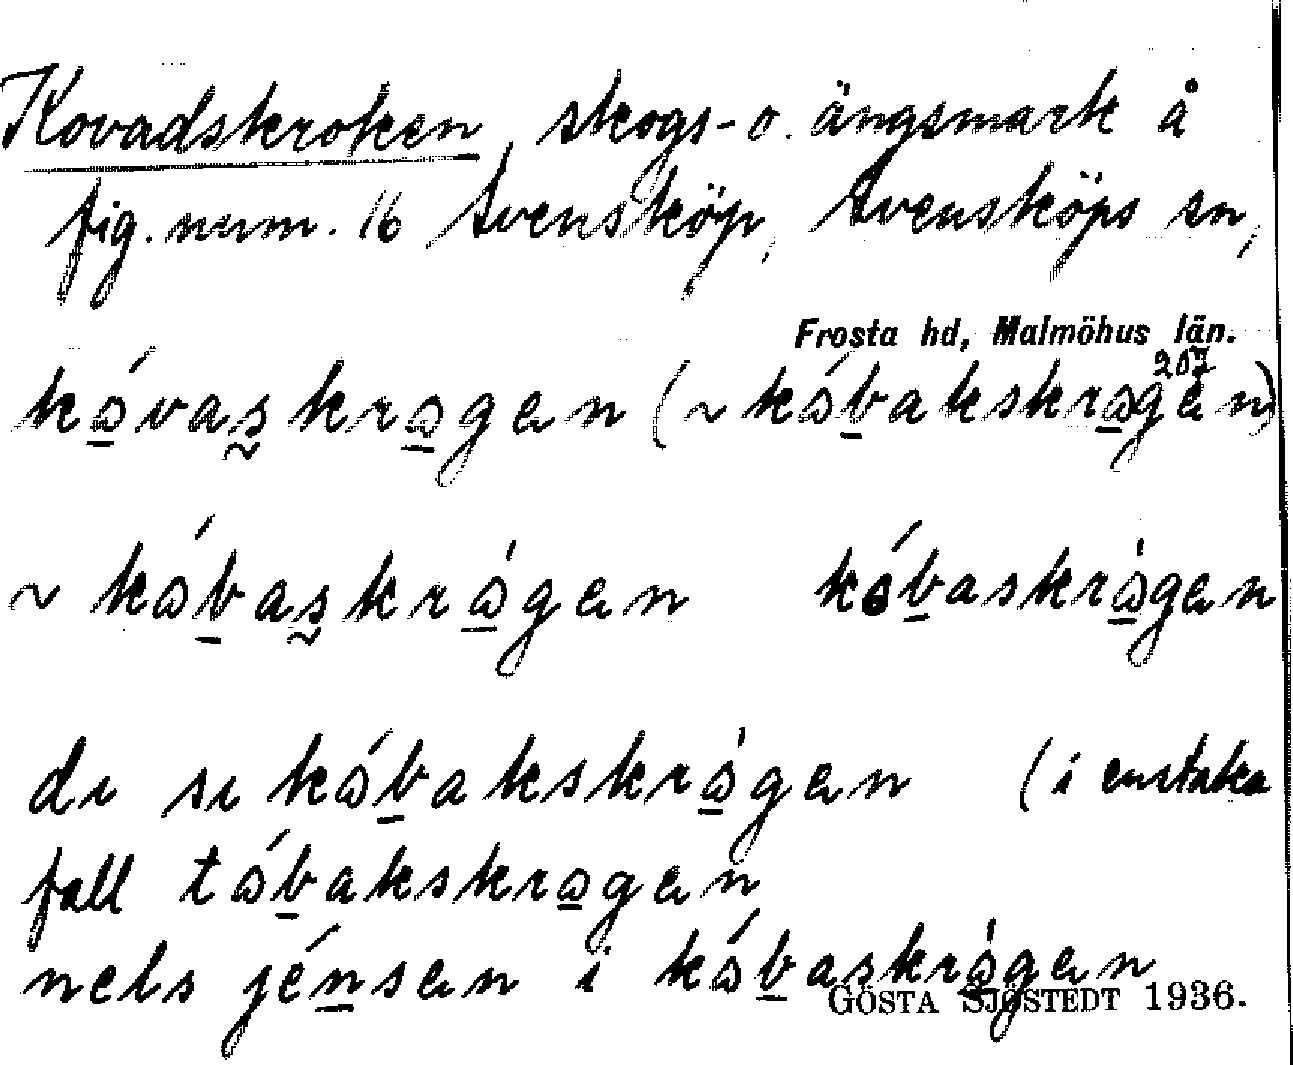 Kovadskroken, skogs- o. ängsmark å
fig. num. 16 Svensköp, Svensköps sn,
Frosta hd, Malmöhus län.
207
kɷ́vas̰krɷgən (~ kɷ́bakskrɷgən)
~ kɷ́bas̰krɷ̀gən kɷ́baskrɷ̀gən
dɩ sɩ kɷ́bakskrɷ̀gən (i enstaka
fall tɷ́bakskrɷgən
nels jénsən i kɷ́baskrɷ̀gən
GÖSTA SJÖSTEDT 1936.